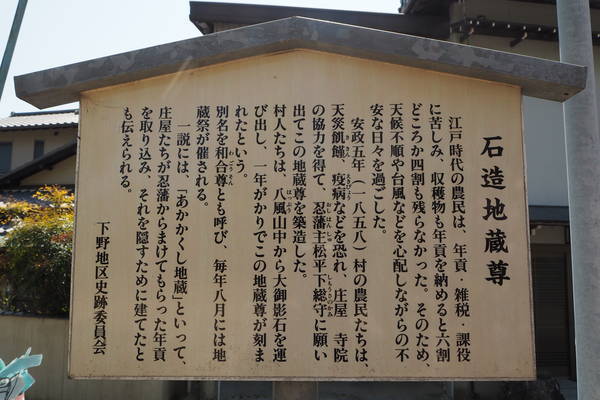 石造地蔵尊
江戸時代の農民は、年貢・雑税・課役
に苦しみ、収穫物も年貢を納めると六割
どころか四割も残らなかった。そのため、
天候不順や台風などを心配しながらの不
安な日々を過ごした。
安政五年（一八五八）村の農民たちは、
天災飢饉、疫病などを恐れ、庄屋 寺院
の協力を得て、忍藩主松平下総守に願い
出てこの地蔵尊を築造した。
村人たちは、八風山中から大御影石を運
び出し、一年がかりでこの地蔵尊が刻ま
れたという。
別名を和合尊とも呼び、毎年八月には地
蔵祭が催される。
一説には、「あかかくし地蔵」といって、
庄屋たちが忍藩からまけてもらった年貢
を取り込み、それを隠すために建てたと
も伝えられる。
下野地区史跡委員会